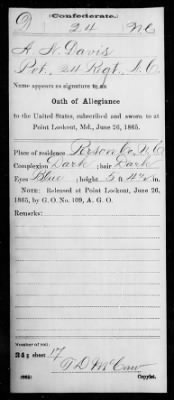 (Confederate.)
D 24 NC
A. N. Davis
Pvt, 24 Regt. N.C.
Name appears as signature to an
Oath of Allegiance
to the United States, subscribed and sworn to at
Point Lookout, Md., June 26, 1865.
Place of residence Person Co, N.C
Complexion Dark; hair Dark
Eyes Blue; height 5 ft 4 in.
NOTE: Released at Point Lookout, June 26,
1865, by G. O. No. 109, A. G. O.
Remarks:
Number of roll:
sheet 17
T D McCaw
Copyist.